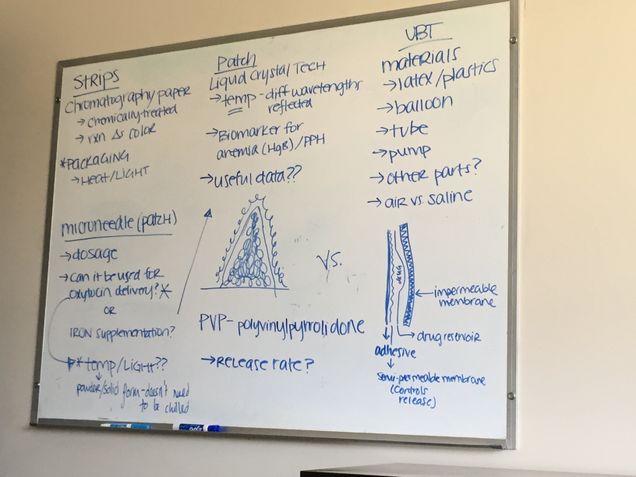 STRIPS
Chromatography paper
→ chemically-treated
→ rxn Δs color
*PACKAGING
→ HEAT/LIGHT
microneedle (PATCH)
→ dosage
→ can it be used for
oxytocin delivery?*
OR
IRON supplementation?
* temp/LIGHT??
powder/solid form - doesn't need
to be chilled
Patch
Liquid Crystal Tech
→ temp - diff wavelengths
reflected
→ Biomarker for
anemia (HgB)/PPH
→ useful data??
VS.
PVP - polyvinylpyrrolidone
→ RELEASE RATE?
UBT
materials
→ latex/plastics
→ balloon
→ tube
→ pump
→ other parts?
→ air vs saline
drug
impermeable
membrane
drug reservoir
adhesive
semi-permeable membrane
(controls
release)